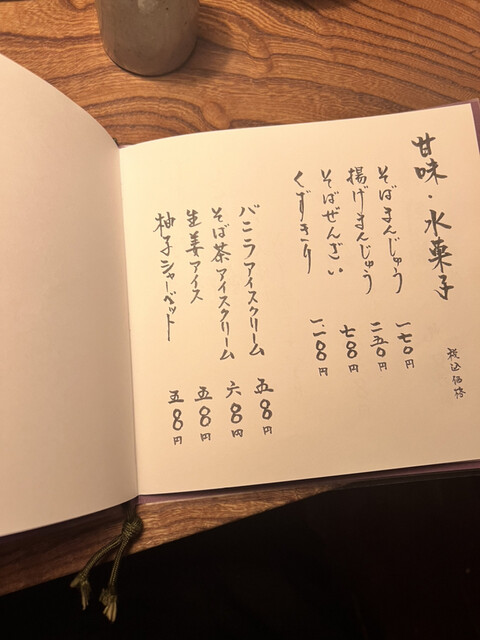 甘味・水菓子
税込価格
そばまんじゅう 一七〇円
揚げまんじゅう 二五〇円
そばぜんざい 七〇〇円
くずきり 一一〇〇円
バニラアイスクリーム 五〇〇円
そば茶アイスクリーム 六〇〇円
生姜アイス 五〇〇円
柚子シャーベット 五〇〇円